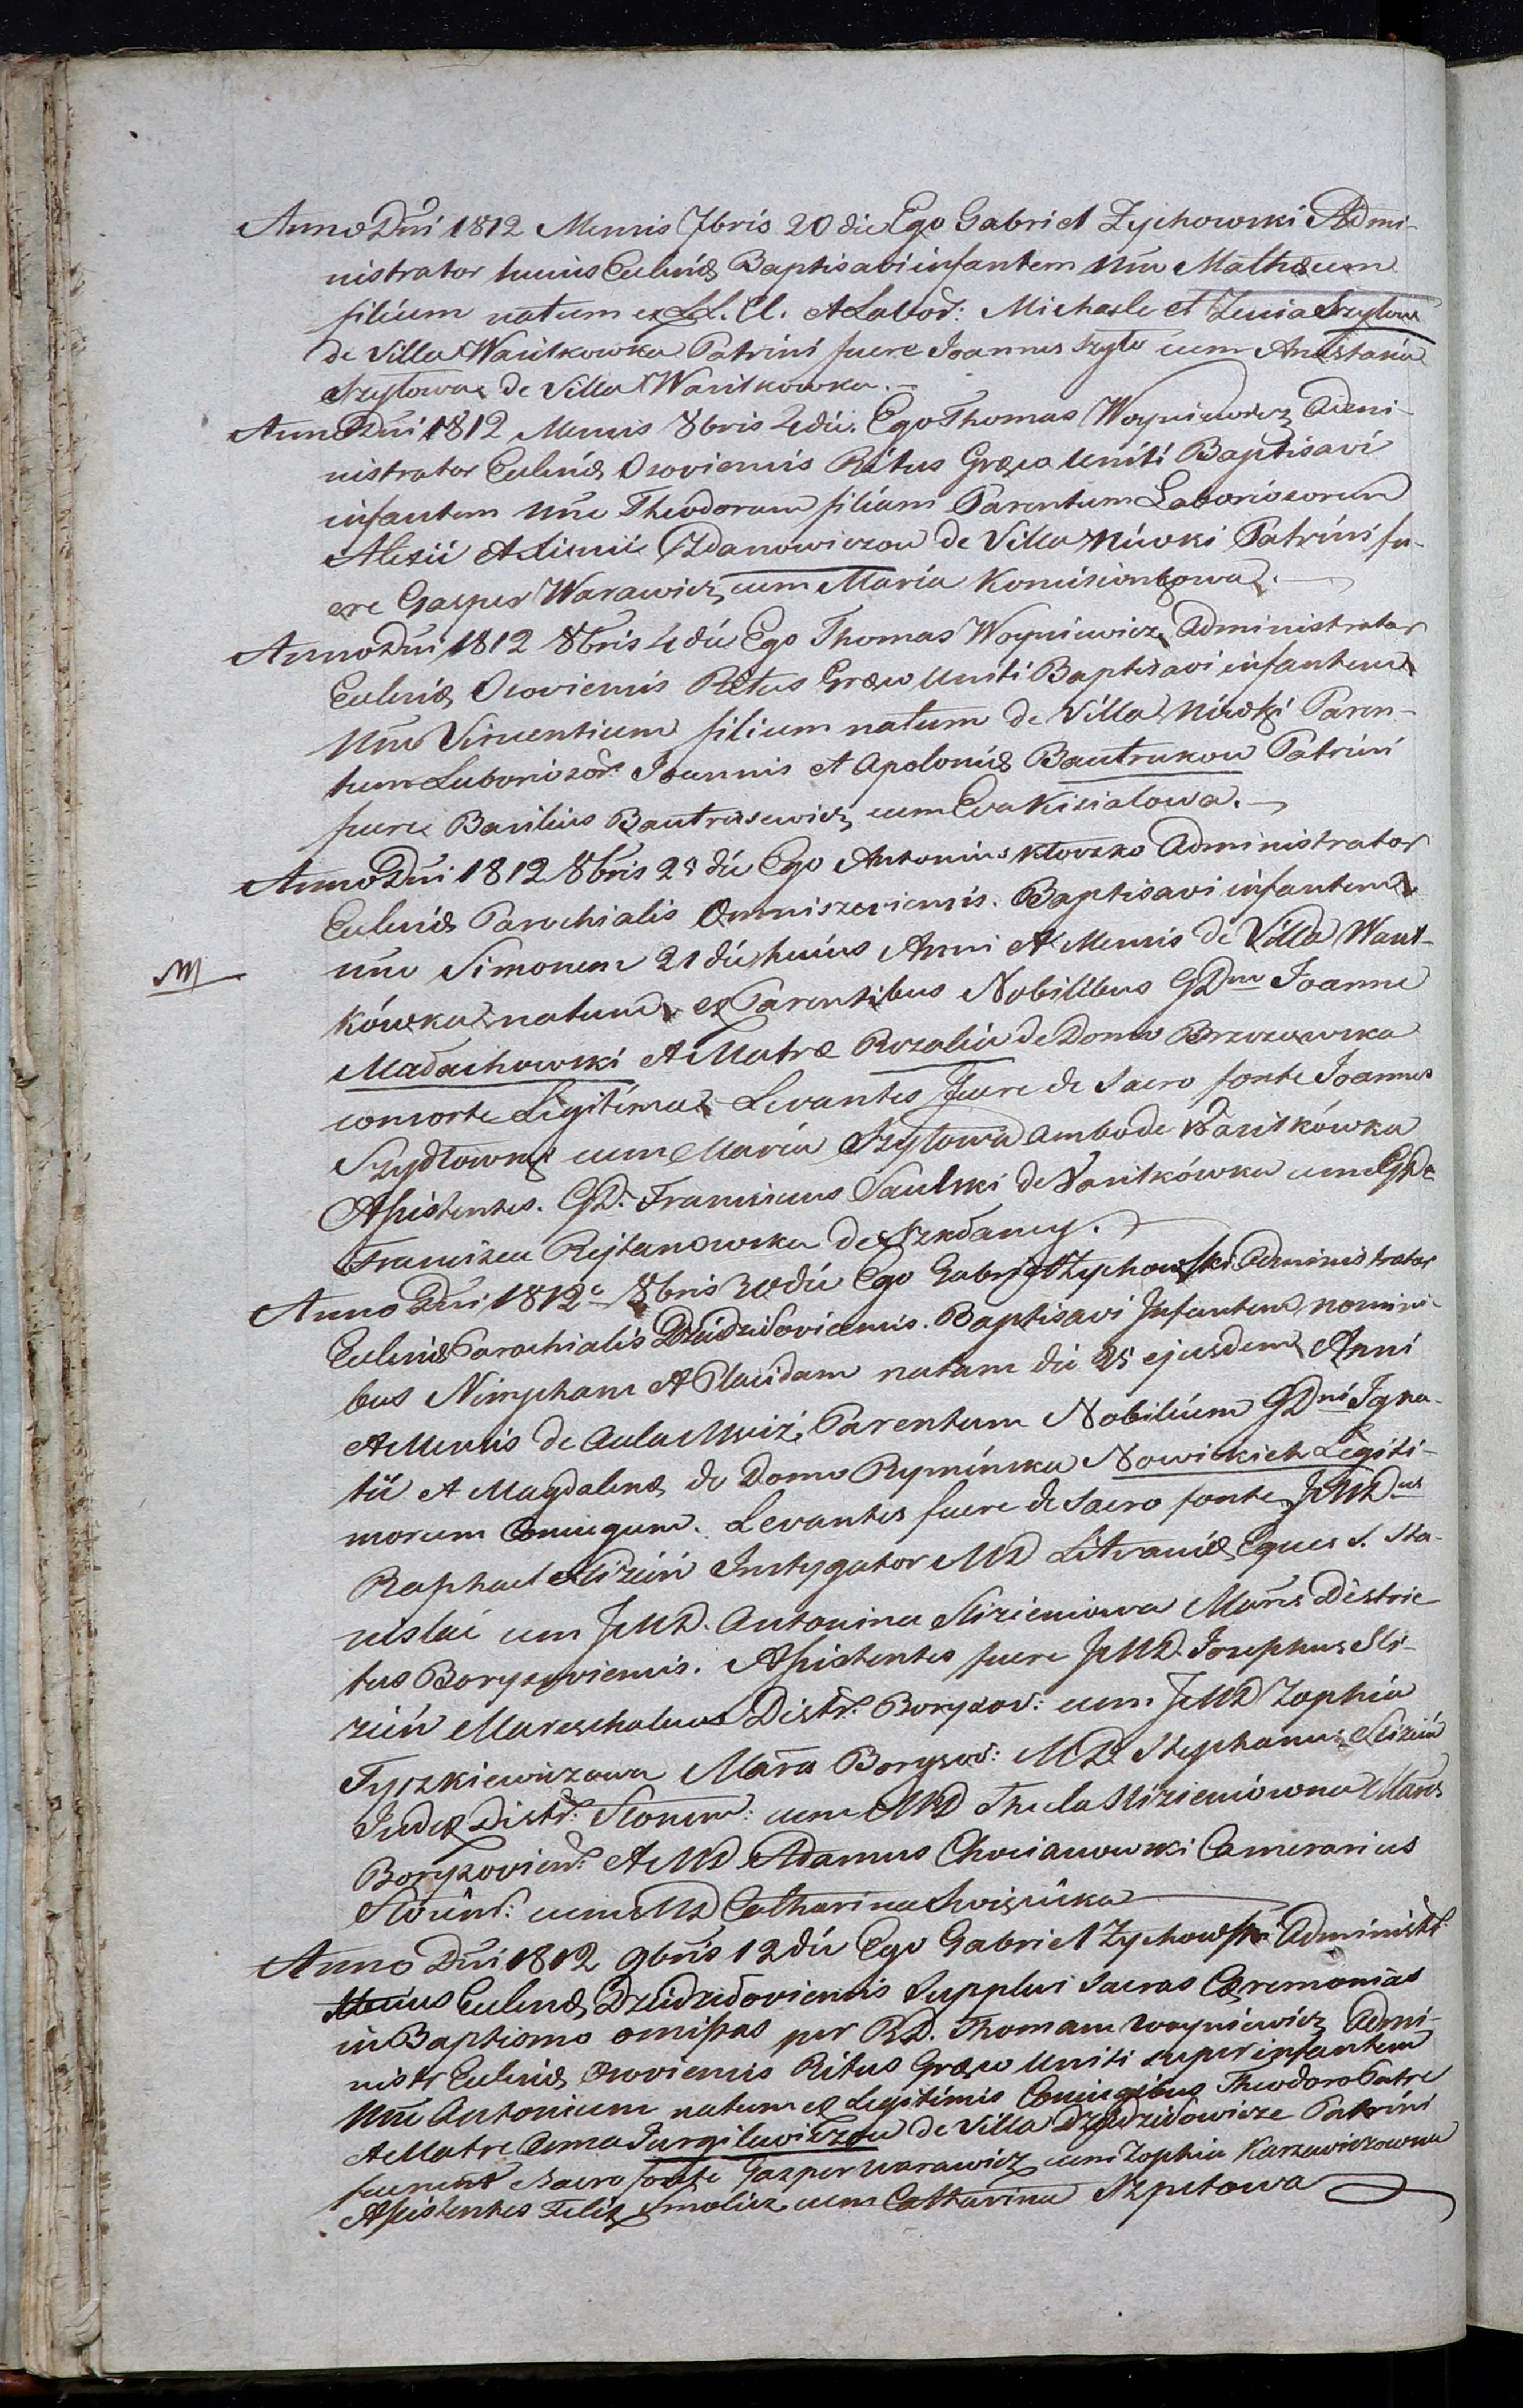 Anno Dni 1812 Mensis 7bris 20 die Ego Gabriel Zychowski Admi-
nistrator huius Eccleniæ Baptisavi infantem Nne Mathæum
filium natum ex LL. CC. et Labor: Michaele et Zenia Szylow
de Villa Wasilkowka Patrini fuere Joannes Szylo cum Anastasia
Szylowa de Villa Wasilkowka.
Anno Dni 1812 Mensis 8bris 4 die. Ego Thomas Woyniewicz Admi-
nistrator Eccleniæ Osoviensis Ritus Græco Uniti Baptisavi
infantem Nne Theodoram filiam Parentum Laboriosorum
Alexii et Zdanowiczow de Villa Niwki Patrini fu-
ere Gasper Warawicz cum Maria
Anno Dni 1812 8bris 4 die Ego Thomas Woyniewicz Administrator
Eccleniæ Osoviensis Ritus Græco Uniti Baptisavi infantem
Nne Vincentium filium natum de Villa Niwki Paren-
tum Laboriosor: Joannis et Apoloniæ Bautrukow Patrini
fuere Basilius Bautrusewicz cum Eva Kisialowa.
Anno Dni 1812 8bris 28 die Ego Antonius Kloczko Administrator
Eccleniæ Parochialis Omniszeviensis. Baptisavi infantem
nne Simonem 21 die huius Anni et Mensis de Villa Wasil-
kówka natum ex Parentibus Nobilibus GDno Joanne
M
Madachowski et Matre Rozalia de Domo Brzozowska
consorte Legitima Levantes fuere de Sacro fonte Joannes
Szydlowski cum Maria Szylowa ambo de Wasilkówka
Assistentes. GD. Franciscus Saulski de Wasilkówka cum GDa
Francisca Rejtanowska de
Anno Dni 1812 8bris 30 die Ego Gabriel Zychowski Administrator
Eccleniæ Parochialis Dziedziloviensis. Baptisavi Infantem nomini-
bus Nimpham et Placidam natam die 25 ejusdem Anni
et Mensis de Aula Mciż, Parentum Nobilium GDni Igna-
tii et Magdalenæ de Domo Rymińska Nowickich Legiti-
morum Coniugum. Levantes fuere de Sacro fonte JWDnus
Raphael Slizień Instygator MD Litvaniæ Eques S. Sta-
nislai cum JWD. Antonina Slizieniowa Maris Distric-
tus Borysoviensis. Assistentes fuere JWD. Josephus Sli-
zień Mareschalcus Distr: Borysov: cum JWD Zophia
Tyszkiewiczowa Maris Borysov: MD. Stephanus Slizień
Judex Distr: Slonim: cum MD Thecla Slizieniowna Maris
Borysovien: et MD Adamus Chocianowski Camerarius
Slonim: cum MD Catharina
Anno Dni 1812 9bris 12 die Ego Gabriel Zychowski Administr:
huius Eccleniæ Dziedziloviensis Supplevi Sacras Cæremonias
in Baptismo omissas per RD. Thomam Woyniewicz Admi-
nistr Eccleniæ Osoviensis Ritus Græco Uniti super infantem
Nne Antonium natum ex Legitimis Coniugibus Theodoro Patre
et Matre Anna Jurgilewiczow de Villa Dziedzilowicze Patrini
fuerunt Sacro fonte Gasper Warawicz cum Zophia Karzewiczowna
Assistentes Felix Smolicz cum Catharina Szpetowa